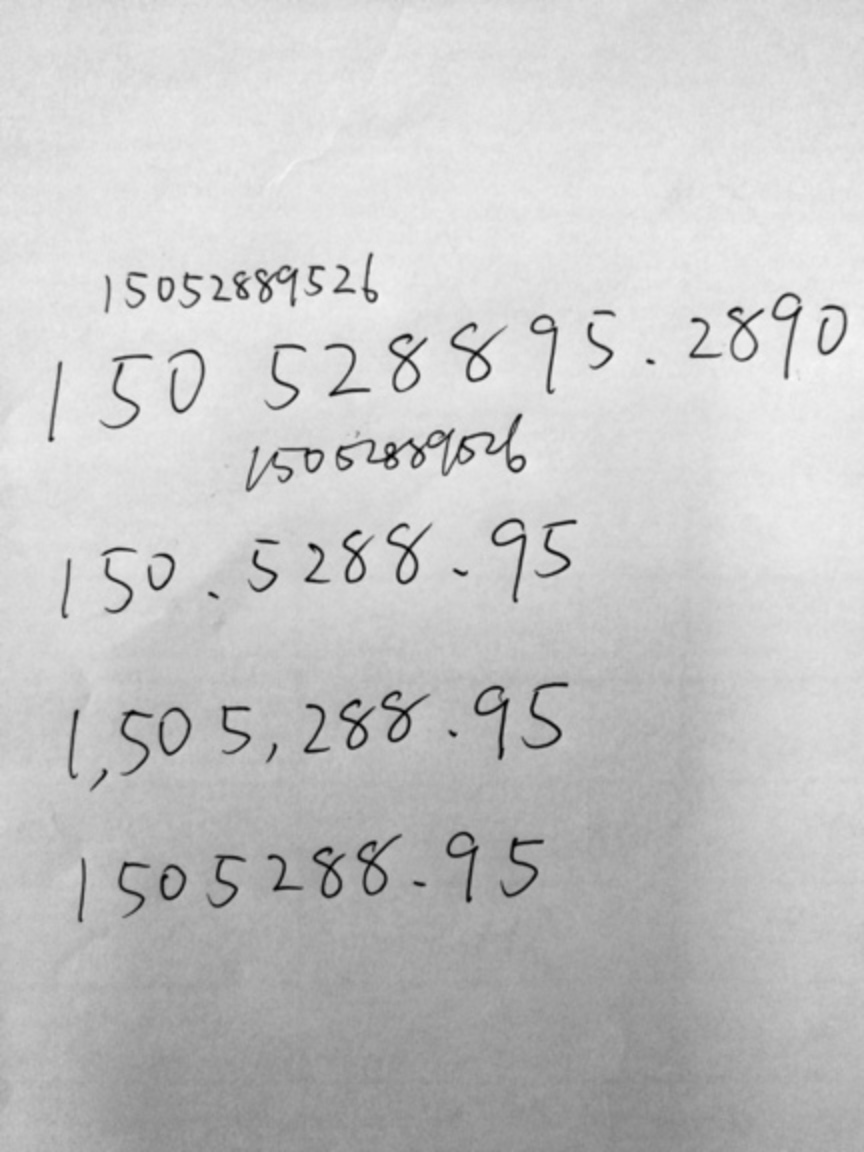 15052889526
150 528895.2890
15052889526
150.5288.95
1,505,288.95
1505288.95